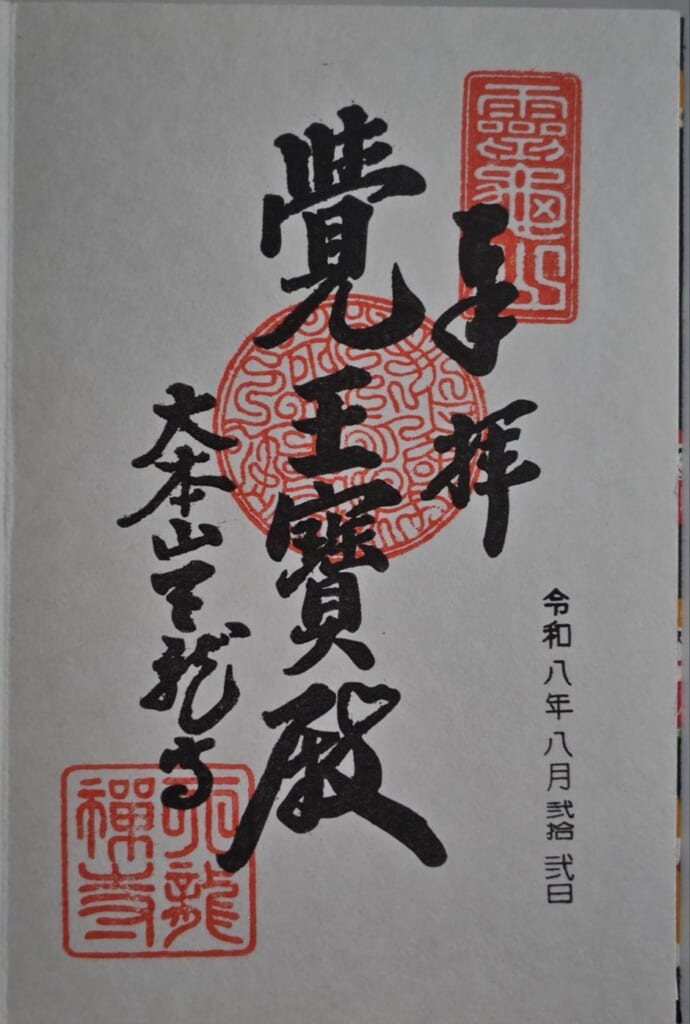 靈龜山
奉拝
令和八年八月弐拾弐日
覺王寶殿
大本山天龍寺
天龍禅寺